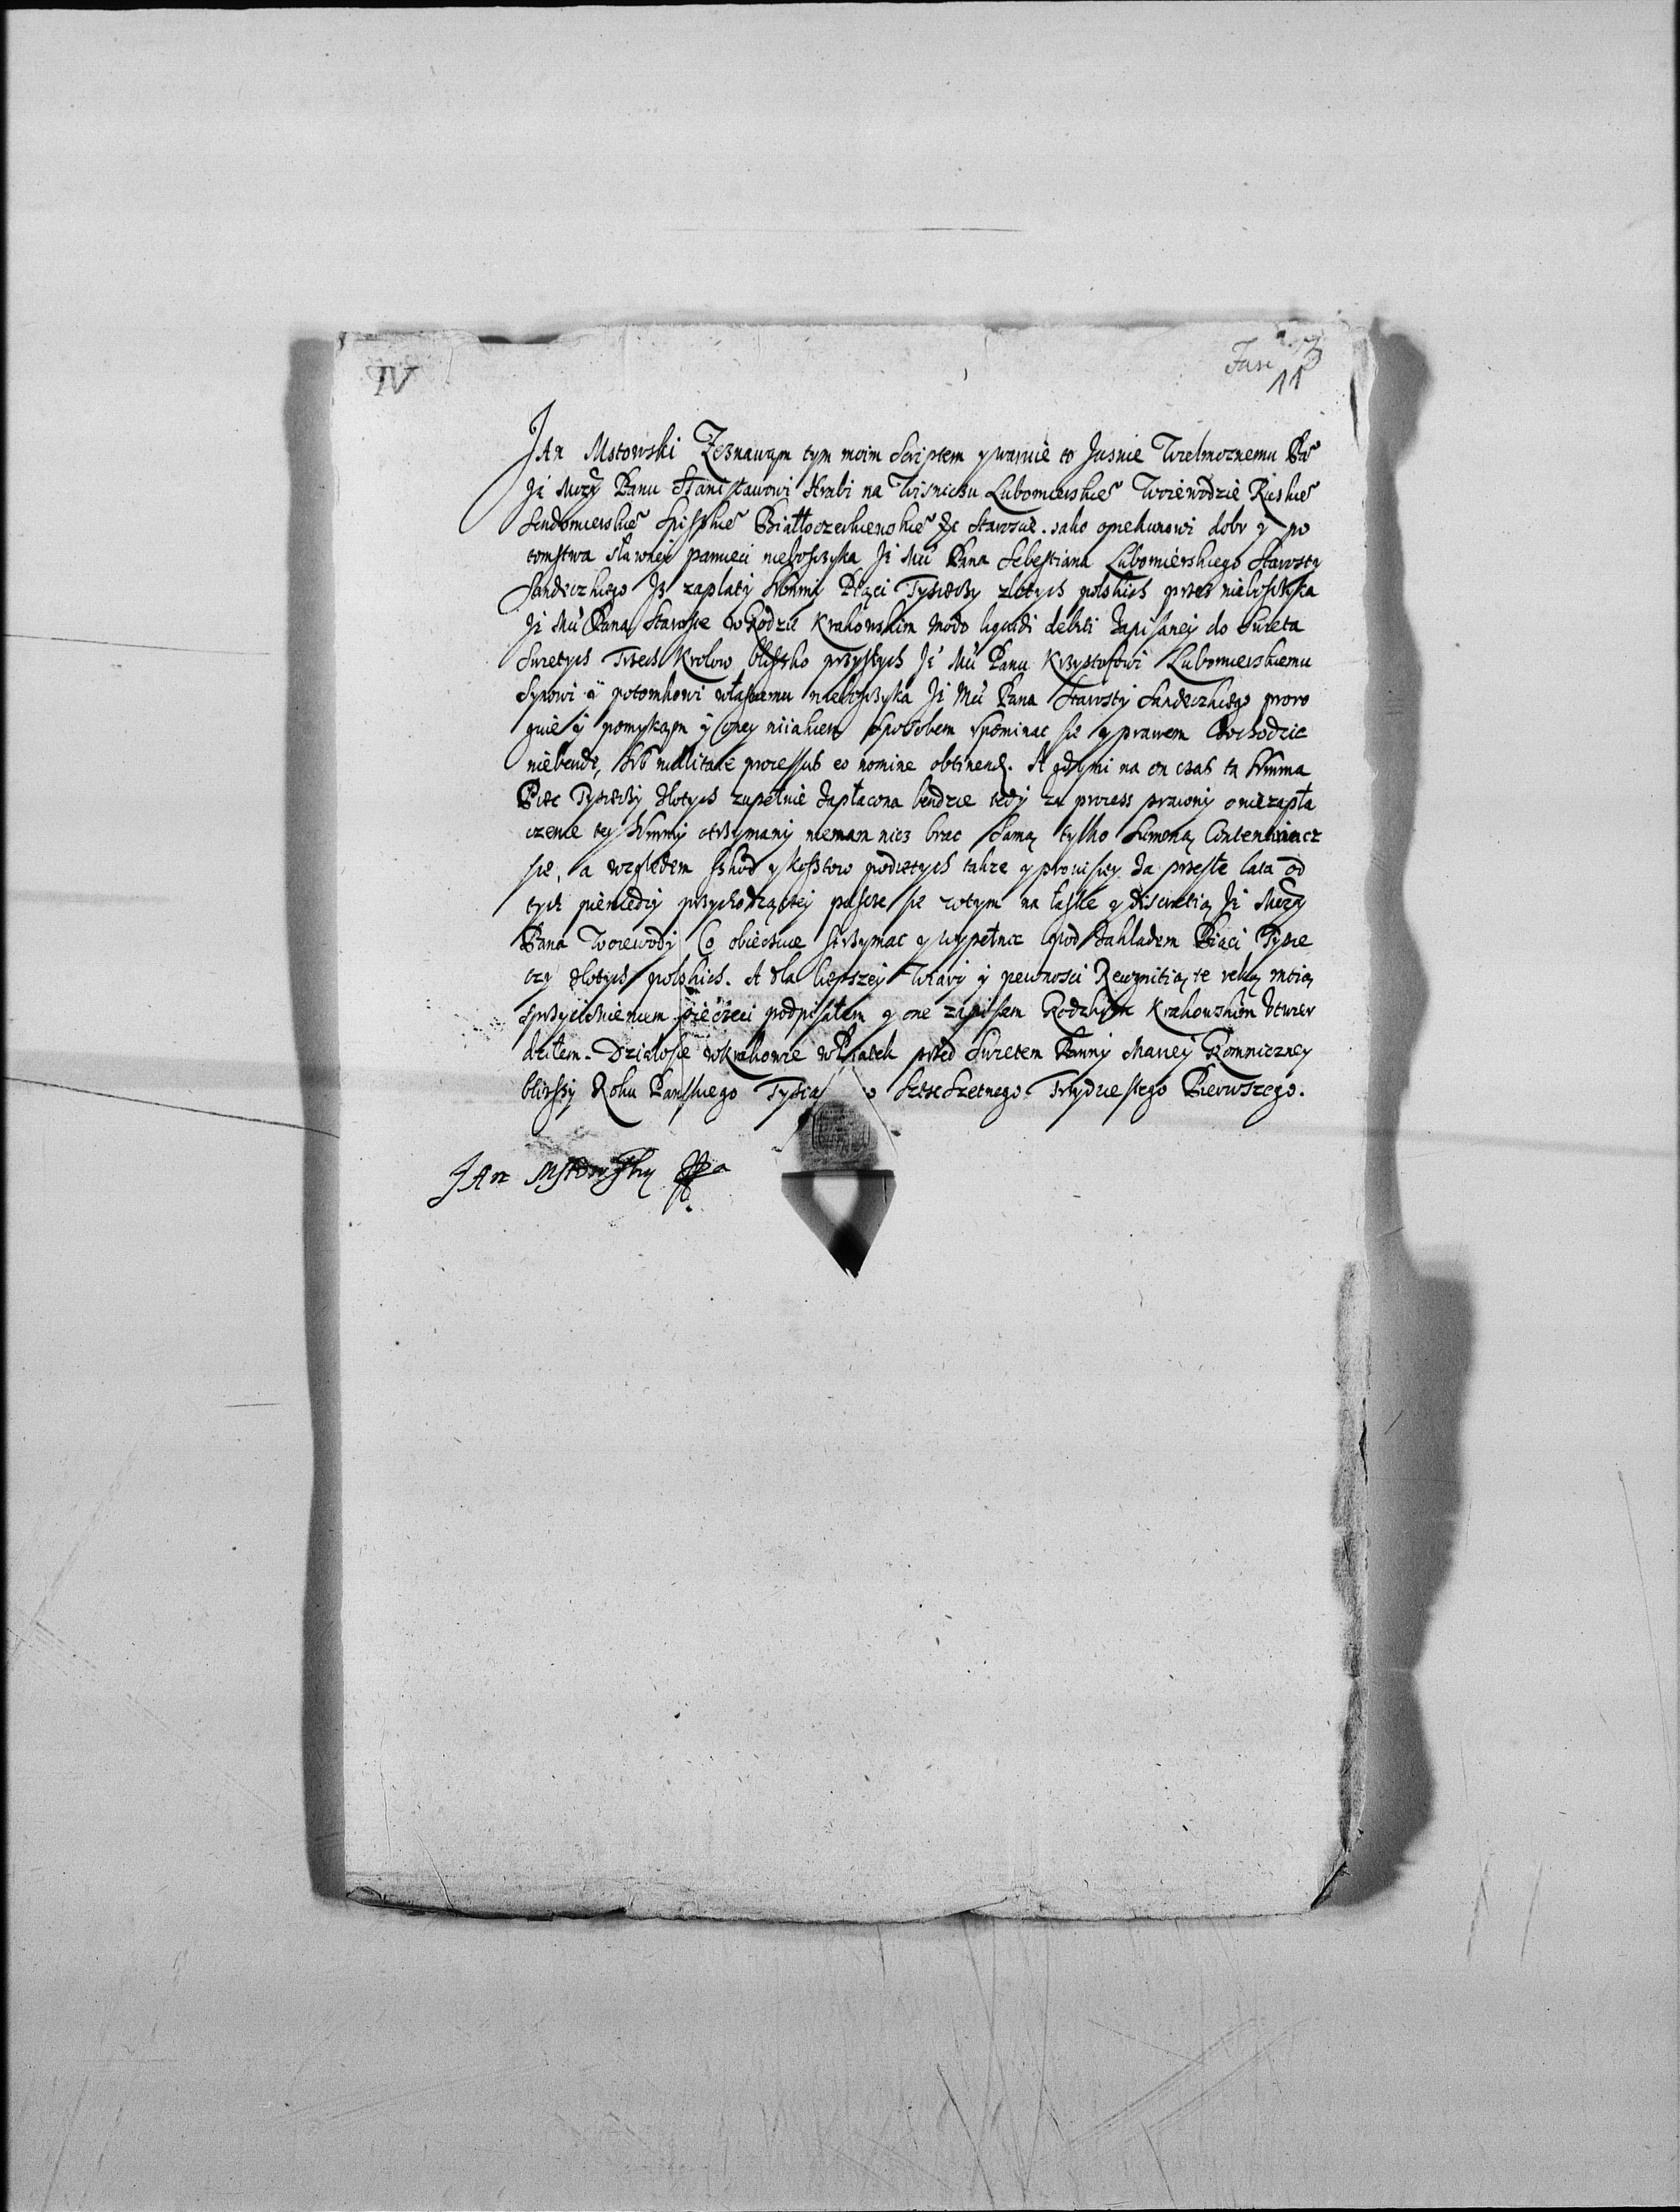 IV
Fasc 13
11
Jan Mstowski Zeznawam tym moim Scriptem y warnie to Jasnie Wielmoznemu Pu
Je Mczy Panu Stanisławowi Hrabi na Wisniczu Lubomierskie Woiewodzie Ruskie
Sendomierskie Spiskie Białłoczerkiewskie &c Staroscie. iako opiekunowi dobr y po
tomstwa sławney pamieci nieboszyka Je Mci Pana Sebestiana Lubomierskiego Starosty
Sandeczkiego Jz zapłaty Summy Piąci Tysieczy zlotych polskich przez nieboszyka
Je Mci Pana Staroste w Rodzie Krakowskim modo liquidi debiti Zapisaney do Swieta
Swietych Trzech Krolow blisko przyszłych Je Mci Panu Krzysztofowi Lubomierskiemu
Synowi y potomkowi własnemu nieboszyka Je Mci Pana Starosty Sandeczkiego proro
guie y pomykam y oney niiakiem sposobem vpominac sie y prawem dochodzic
niebende, sub nullitate processus eo nomine obtinend. A gdy mi na on czas ta Summa
Piec Tysieczy Zlotych zupełnie Zapłacona bendzie tedy za process prawny o niezapła
czenie tey Summy otrzymany niemam nicz brac samą tylko Summą Contentuiacz
sie, a wzgledem szkod y kosztow podietych takze y prouisiey za przeszłe lata od
tych pieniedzy przychodzączey puszcze sie wtym na łaske y discretią Je Mczy
Pana Woiewody Co obiecuie strzymac y wypełnic pod Zakladem Piąci Tysie
czy Zlotych polskich. A dla liepszey Wiary y pewnosci Recognitią te reką moią
sprzycisnieniem pieczeci podpisałem y one zapisem Rodzkim Krakowskim Vtwier
dziłem. Działosie w Krakowie w Piatek przed Swietem Panny Mariey Gromniczney
bliszy Roku Panskiego Tysią o Szesc Setnego Trzydziestego Pierwszego.
Jan Mstowsky